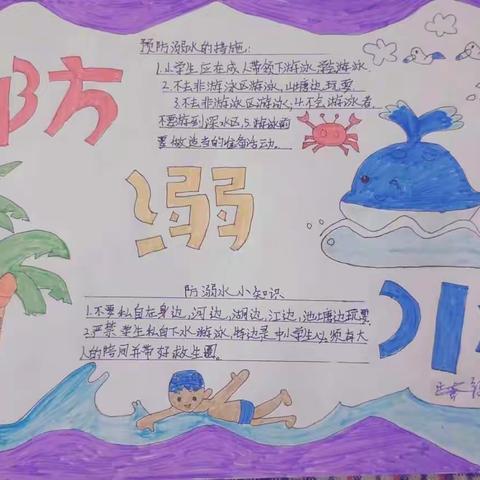 防
预防溺水的措施:
1.小学生应在成人带领下游泳,学会游泳.
2.不去非游泳区游泳,山塘边玩耍
3.不去非游泳区游泳;4.不会游泳者
不要游到深水区,5.游泳的
要做适当的准备活动.
溺
防溺水小知识
1.不要私自在身边,河边,湖边,江边,池塘边玩耍
2.严禁学生私自下水游泳,特边是中小学生必须有大
人的陪同并带好救生圈。
水